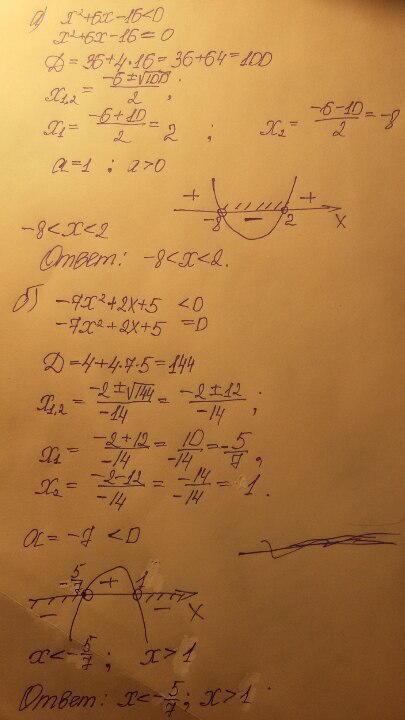 а) x²+6x-16<0
x²+6x-16=0
D=36+4·16=36+64=100
x₁,₂ = (-6±√100)/2 ;
x₁ = (-6+10)/2 = 2 ; x₂ = (-6-10)/2 = -8
a=1 ; a>0
+ - +
-8 2 x
-8<x<2
Ответ: -8<x<2.
б) -7x²+2x+5 <0
-7x²+2x+5 =0
D=4+4·7·5=144
x₁,₂ = (-2±√144)/-14 = (-2±12)/-14 ;
x₁ = (-2+12)/-14 = 10/-14 = -5/7 ,
x₂ = (-2-12)/-14 = -14/-14 = 1 .
a=-7 <0
-5/7 + 1
- - x
x<-5/7 ; x>1
Ответ: x<-5/7 ; x>1